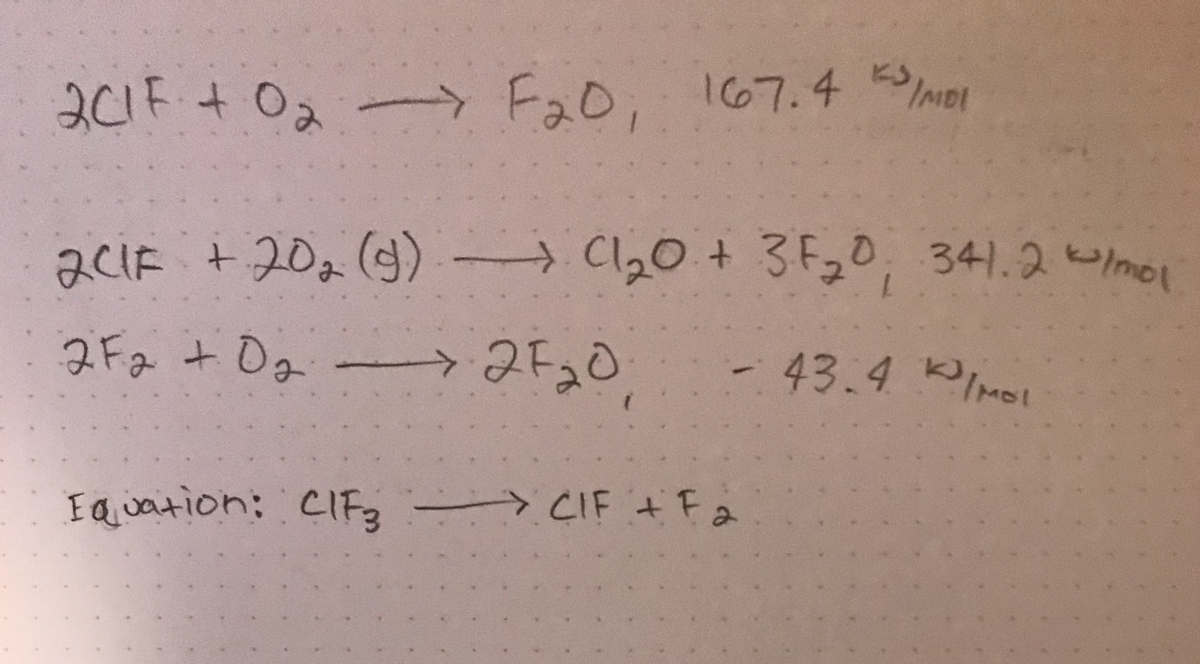 2ClF + O₂ → F₂O, 167.4 kJ/mol
2ClF + 2O₂ (g) → Cl₂O + 3F₂O, 341.2 kJ/mol
2F₂ + O₂ → 2F₂O, - 43.4 kJ/mol
Equation: ClF₃ → ClF + F₂